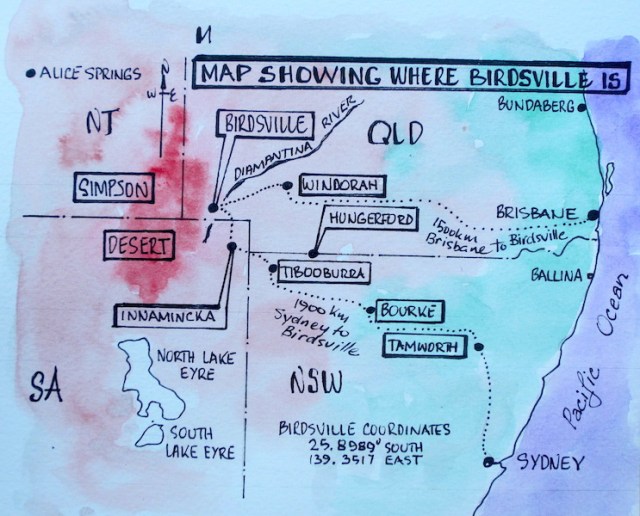 N
MAP SHOWING WHERE BIRDSVILLE IS
ALICE SPRINGS
N
W E
BUNDABERG
NT
BIRDSVILLE
DIAMANTINA RIVER
QLD
SIMPSON
WINDORAH
HUNGERFORD
BRISBANE
1500km
Brisbane to Birdsville
DESERT
TIBOOBURRA
BALLINA
INNAMINCKA
1900 km
Sydney to
Birdsville
BOURKE
TAMWORTH
Pacific Ocean
NORTH LAKE
EYRE
SA
NSW
SOUTH
LAKE EYRE
BIRDSVILLE COORDINATES
25.8989° SOUTH
139.3517 EAST
SYDNEY